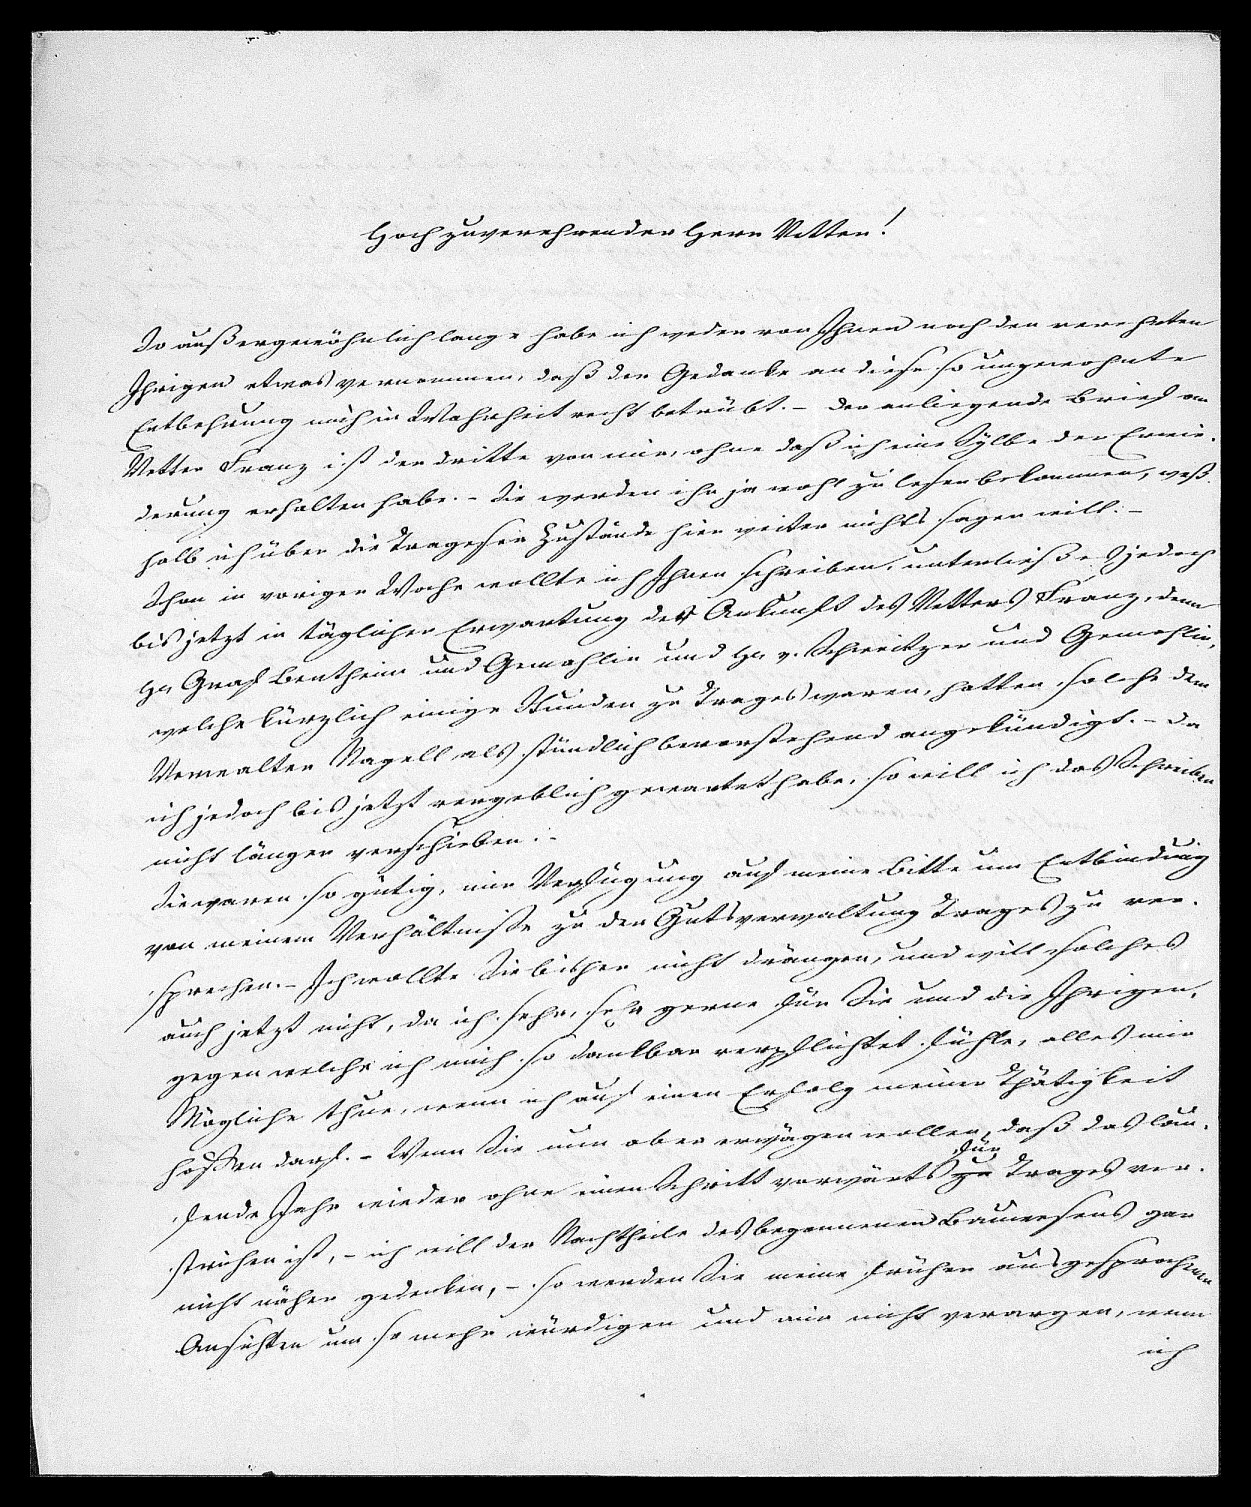 Hochzuverehrender Herr Vetter!
So außergewöhnlich lange habe ich weder von Ihnen noch den verehrten
Ihrigen etwas vernommen, daß der Gedanke an diese so ungewohnte
Entbehrung mich in Wahrheit recht betrübt. – Der anliegende Brief an
Vetter Franz ist der dritte von mir, ohne daß ich eine Sylbe der Erwie-
derung erhalten habe. – Sie werden ihn ja wohl zu lesen bekommen, weß-
halb ich über die Trageser Zustände hier weiter nichts sagen will. –
Schon in voriger Woche wollte ich Ihnen schreiben, unterließ es jedoch
bis jetzt in täglicher Erwartung der Ankunft des Vetters Franz, denn
Hr Graf Bentheim und Gemahlin und Hr v. Schweitzer und Gemahlin,
welche kürzlich einige Stunden zu Trages waren, hatten solche dem
Verwalter Nagell als stündlich bevorstehend angekündigt. – Da
ich jedoch bis jetzt vergeblich gewartet habe, so will ich das Schreiben
nicht länger verschieben. –
Sie waren so gütig, mir Verfügung auf meine Bitte um Entbindung
von meinem Verhältniße zu der Gutsverwaltung Trages zu ver-
sprechen. – Ich wollte Sie bisher nicht drängen, und will solches
auch jetzt nicht, da ich sehr, sehr gerne für Sie und die Ihrigen,
gegen welche ich mich so dankbar verpflichtet fühle, alles mir
Mögliche thue, wenn ich auf einen Erfolg meiner Thätigkeit
hoffen darf. – Wenn Sie nun aber erwägen wollen, daß das lau-
fende Jahr wieder ohne einen Schritt vorwärts zu für Trages ver-
strichen ist, – ich will der Nachtheile des begonnenen Bauwesens gar
nicht näher gedenken, – so werden Sie meine früher ausgesprochenen
Ansichten um so mehr würdigen und mir nicht verargen, wenn
ich